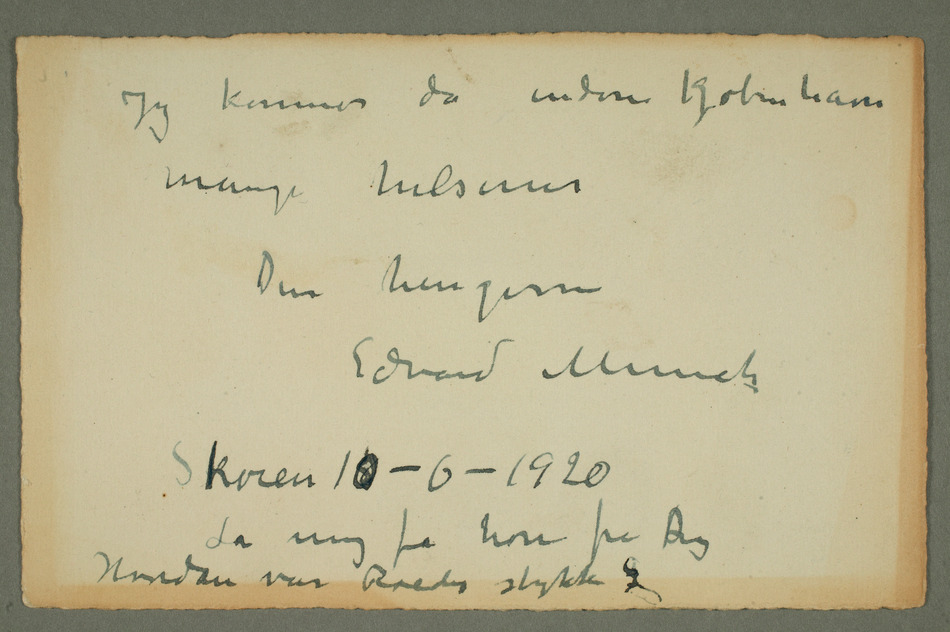 Jeg kommer da indom Kjøbenhavn
Mange hilsener
Din hengivne
Edvard Munch
Skøien 10-6-1920
La mig få høre fra Dig
Hvordan var Roedes stykke?